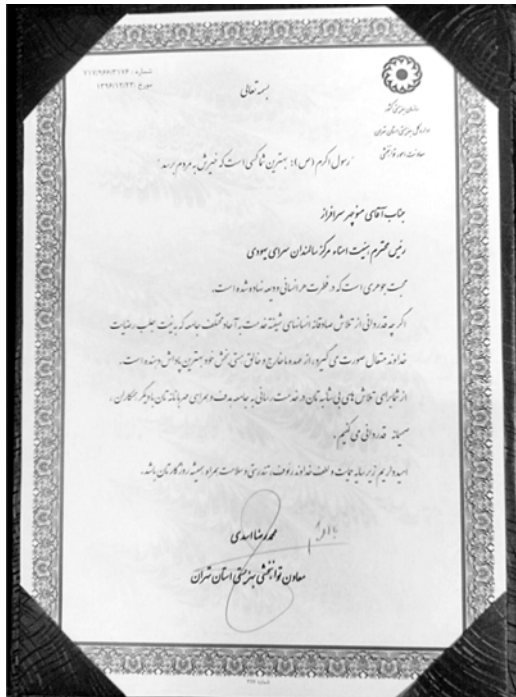 شماره : ۷۱۷/۹۶۶/۳۱۷۶
مورخ : ۱۳۹۶/۱۲/۲۳
بسمه تعالی
سازمان بهزیستی کشور
اداره کل بهزیستی استان تهران
معاونت امور توانبخشی
رسول اکرم (ص): بهترین شما کسی است که خیرش به مردم برسد
جناب آقای منوچهر سرافراز
رئیس محترم هیئت امناء مرکز سالمندان سرای یهودی
محبت جوهری است که در فطرت هر انسانی ودیعه نهاده شده است.
اگر چه قدردانی از تلاش صادقانه انسانهای شیفته خدمت به آحاد مختلف جامعه که به نیت جلب رضایت
خداوند متعال صورت می گیرد، از عهده ما خارج و خالق هستی بخش خود بهترین پاداش دهنده است.
از شما برای تلاش های بی شائبه تان در خدمت رسانی به جامعه هدف و همراهی صبورانه تان با دیگر همکاران،
صمیمانه قدردانی می کنیم.
امید داریم زیر سایه عنایت و لطف خداوند رئوف، تندرستی و سلامت همراه همیشه روزگارتان باشد.
محمدرضا اسدی
معاون توانبخشی بهزیستی استان تهران